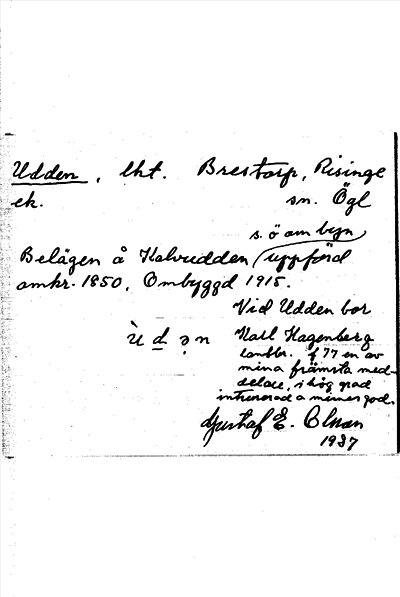 Udden, lht. Brestorp, Risinge
ek. sn. Ögl
s.ö om byn
Belägen å Kalvudden uppförd
omkr. 1850, Ombyggd 1915.
Vid Udden bor
ù d ə n Karl Hagenberg
lantbr. f 77 en av
mina främsta med-
delare, i hög grad
intresserad o minnesgod.
Gustaf E. Olsson
1937